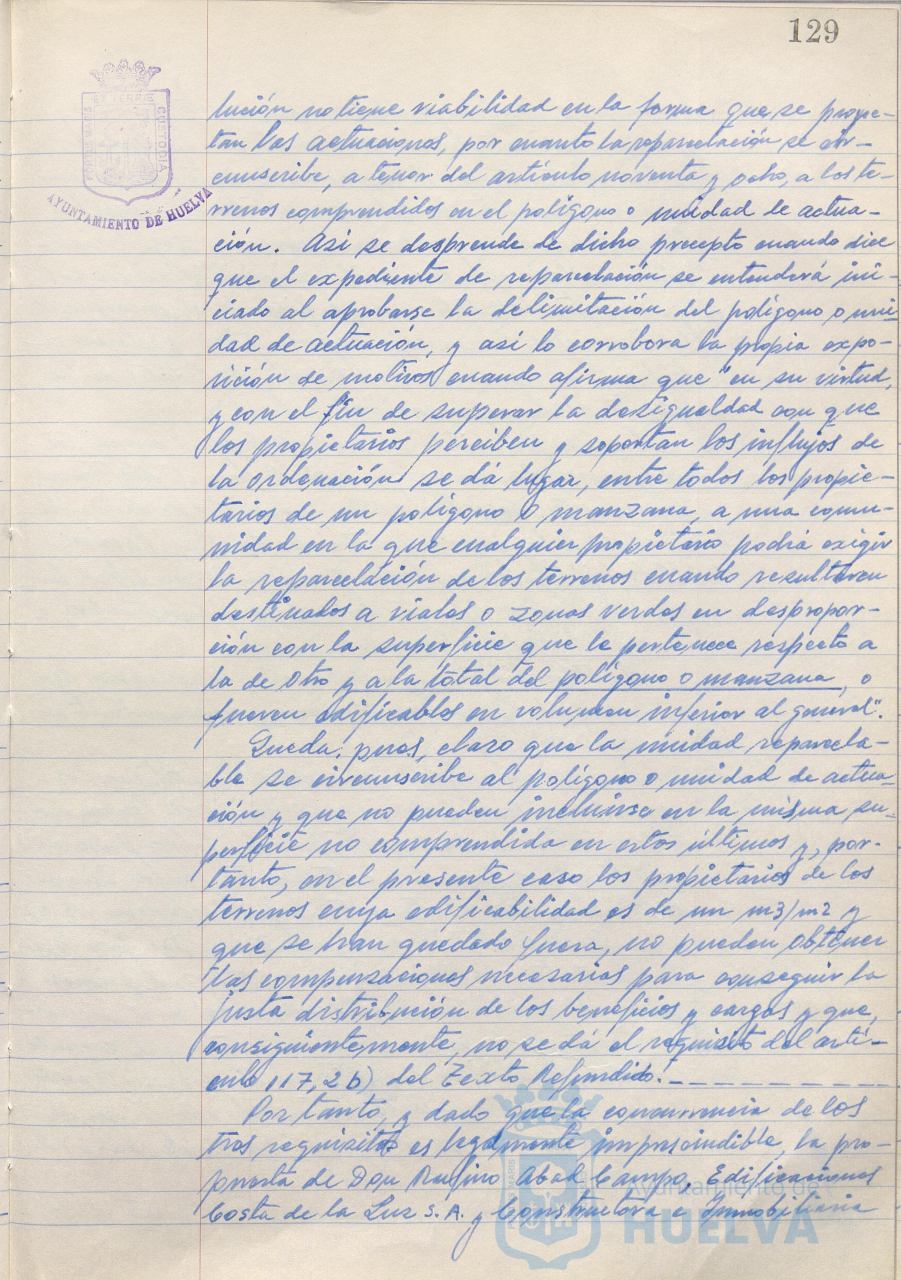 129
PORTUS MARIS ET TERRAE CUSTODIA
AYUNTAMIENTO DE HUELVA
lución no tiene viabilidad en la forma que se proyec-
tan las actuaciones, por cuanto la reparcelación se cir-
cunscribe, a tenor del artículo noventa y ocho, a los te-
rrenos comprendidos en el polígono o unidad de actua-
ción. Así se desprende de dicho precepto cuando dice
que el expediente de reparcelación se entenderá ini-
ciado al aprobarse la delimitación del polígono o uni-
dad de actuación, y así lo corrobora la propia expo-
sición de motivos cuando afirma que "en su virtud,
y con el fin de superar la desigualdad con que
los propietarios perciben y soportan los influjos de
la Ordenación se dá lugar, entre todos los propie-
tarios de un polígono o manzana, a una comu-
nidad en la que cualquier propietario podrá exigir
la reparcelación de los terrenos cuando resultaren
destinados a viales o zonas verdes en despropor-
ción con la superficie que le pertenece respecto a
la de otro y a la total del polígono o manzana, o
fueren edificables en volumen inferior al general".
Queda, pues, claro que la unidad reparcela-
ble se circunscribe al polígono o unidad de actua-
ción y que no pueden incluirse en la misma su-
perficie no comprendida en estos últimos y, por-
tanto, en el presente caso los propietarios de los
terrenos cuya edificabilidad es de un m3/m2 y
que se han quedado fuera, no pueden obtener
las compensaciones necesarias para conseguir la
justa distribución de los beneficios y cargas y que,
consiguientemente, no se dá el requisito del artí-
culo 117,2 b) del Texto Refundido.-
Por tanto, y dado que la concurrencia de los
tres requisitos es legalmente imprescindible, la pro-
puesta de Don Rufino Abad Campo, Edificaciones
Costa de la Luz S.A. y Constructora e Inmobiliaria
Ayuntamiento de
HUELVA